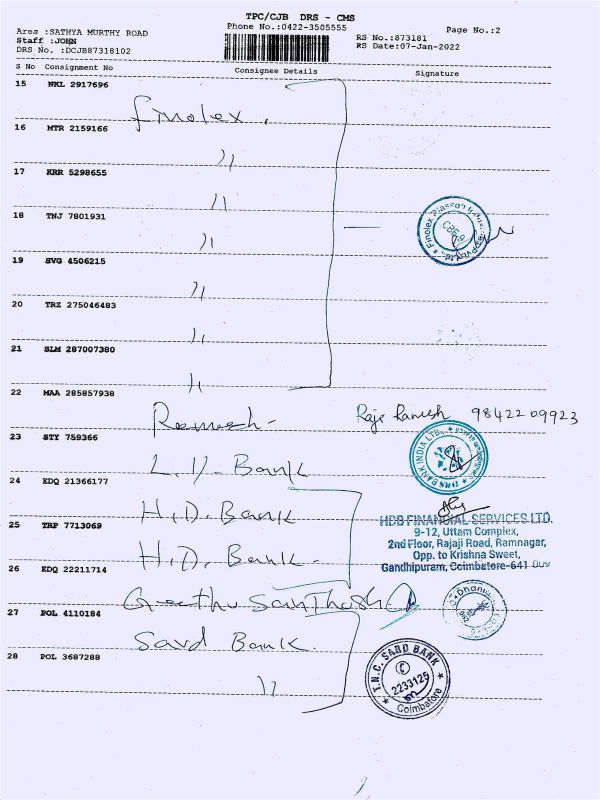 TPC/CJB DRS - CMS
Area :SATHYA MURTHY ROAD
Phone No.:0422-3505555
Page No.:2
Staff :JOHN
RS No.:873181
DRS No. :DCJB87318102
RS Date:07-Jan-2022
S No Consignment No Consignee Details Signature
15 NKL 2917696
Finolex,
16 MTR 2159166
〃
17 KRR 5298655
〃
18 TNJ 7801931
〃
Finolex
19 SVG 4506215
〃
20 TRZ 275046483
〃
21 SLM 287007380
〃
22 MAA 285857938
Ramesh- Raje Ramesh 98422 09923
23 STY 759366
L.V. Bank
DBS BANK INDIA LTD.
24 EDQ 21366177
H.D. Bank
HDB FINANCIAL SERVICES LTD.
25 TRP 7713069
9-12, Uttam Complex,
2nd Floor, Rajaji Road, Ramnagar,
H.D. Bank.
Opp. to Krishna Sweet,
26 EDQ 22211714
Gandhipuram, Coimbatore-641
Geethu Santhosh
27 POL 4110184
Sard Bank.
28 POL 3687288
〃
T.N.C. SARD BANK
2233125
Coimbatore